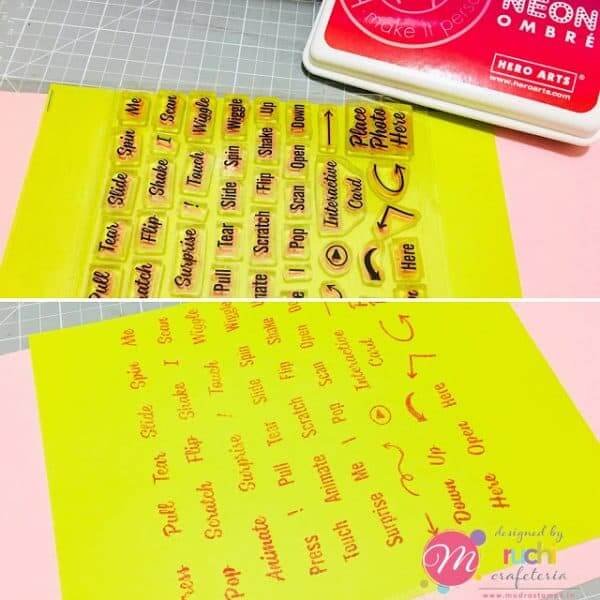 make it person
NEON
OMBRÉ
HERO ARTS
www.heroarts.com
Pull Tear Slide Spin Me
atch Flip Shake I Scan
Surprise ! Touch Wiggle
Pull Tear Slide Spin Wiggle
imate Scratch Flip Shake Up
e I Pop Scan Open Down
Interactive
Card
Place
Photo
Here
Here
ress Pull Tear Slide Spin Me
Pop Scratch Flip Shake I Scan
Animate Surprise ! Touch Wiggle
Press ! Pull Tear Slide Spin Wiggle
Touch Animate Scratch Flip Shake
Surprise Me I Pop Scan Open Down
Interactive
Card
Down Up
Here Open Here
M
designed by
ruchi
crafeteria
www.mudrastamps.in